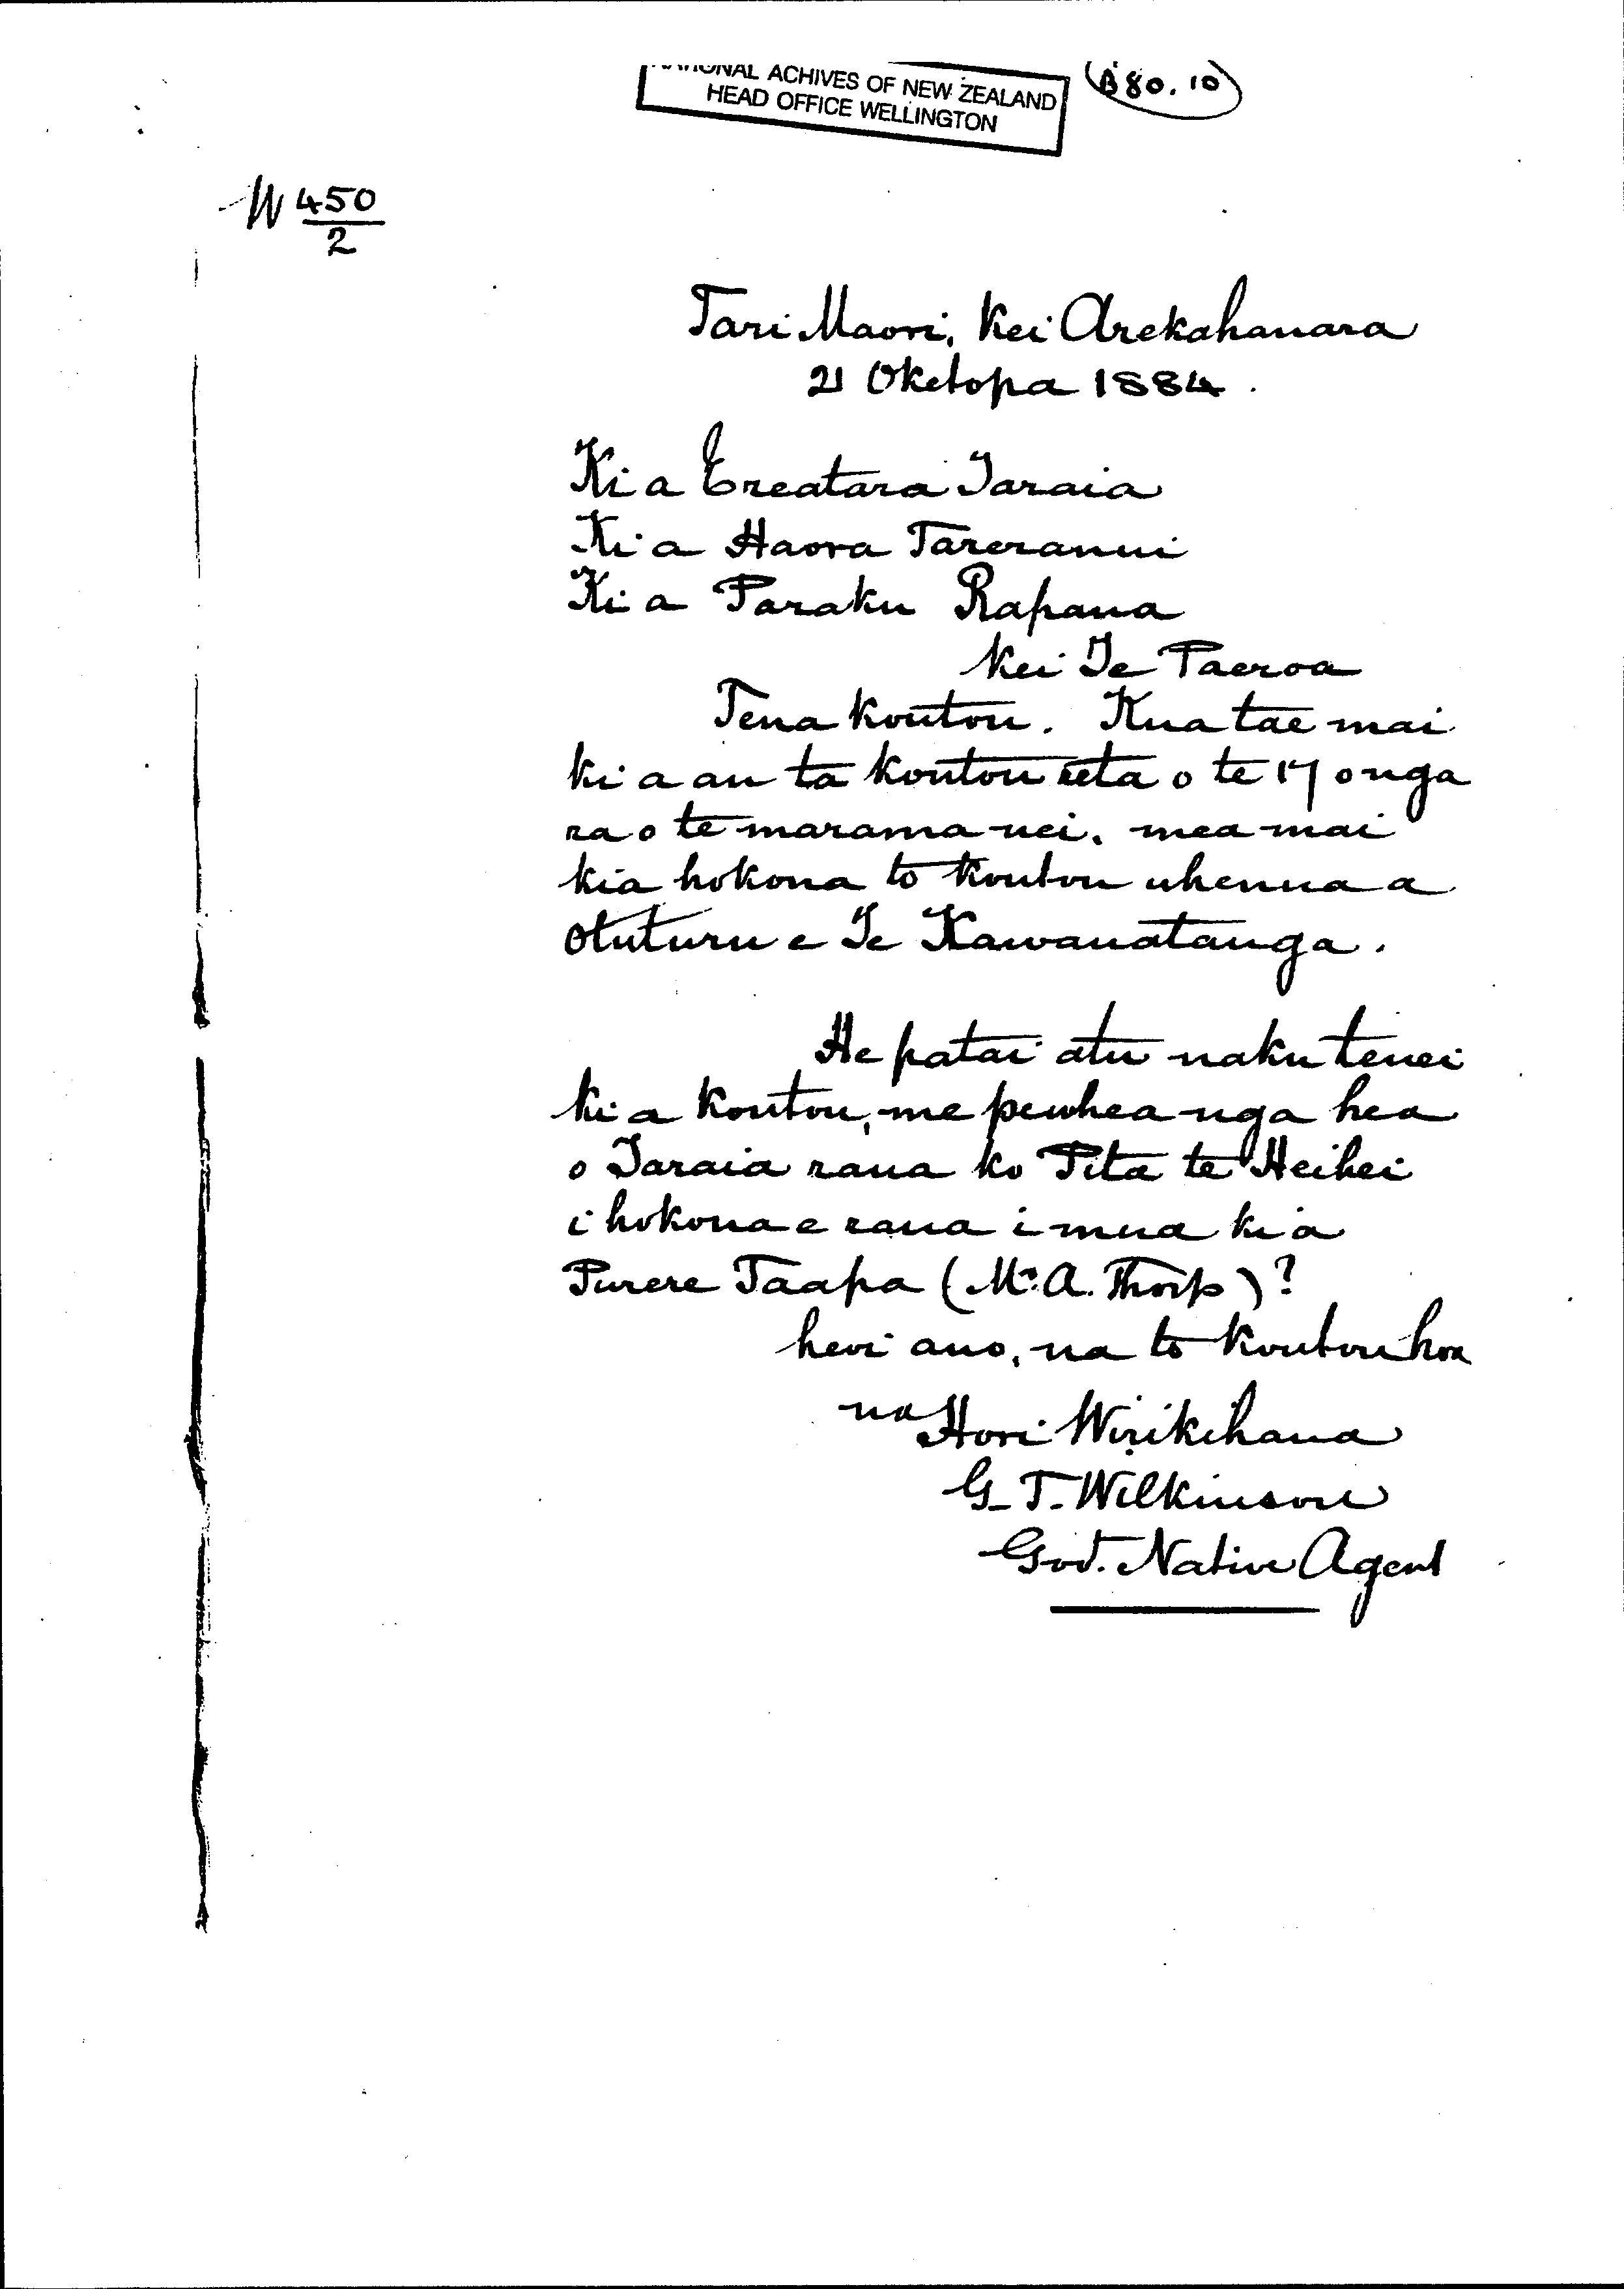 NATIONAL ACHIVES OF NEW ZEALAND
HEAD OFFICE WELLINGTON
B80.10
N 450/2
Tari Maori, Kei Arekahanara
21 Oketopa 1884.
Ki a Ereatara Taraia
Ki a Haora Tareranui
Ki a Paraku Rapana
Kei Te Paeroa
Tena koutou. Kua tae mai
ki a au ta koutou reta o te 17 o nga
ra o te marama nei, mea mai
kia hokona to koutou whenua a
Otuturu e Te Kawanatanga.
He patai atu naku tenei
ki a koutou, me pewhea nga hea
o Taraia raua ko Pita te Heihei
i hokona e raua i mua ki a
Purere Taapa (Mr. A. Thorp)?
heoi ano, na to koutou hoa
na Hori Wirikihana
G. T. Wilkinson
Govt. Native Agent